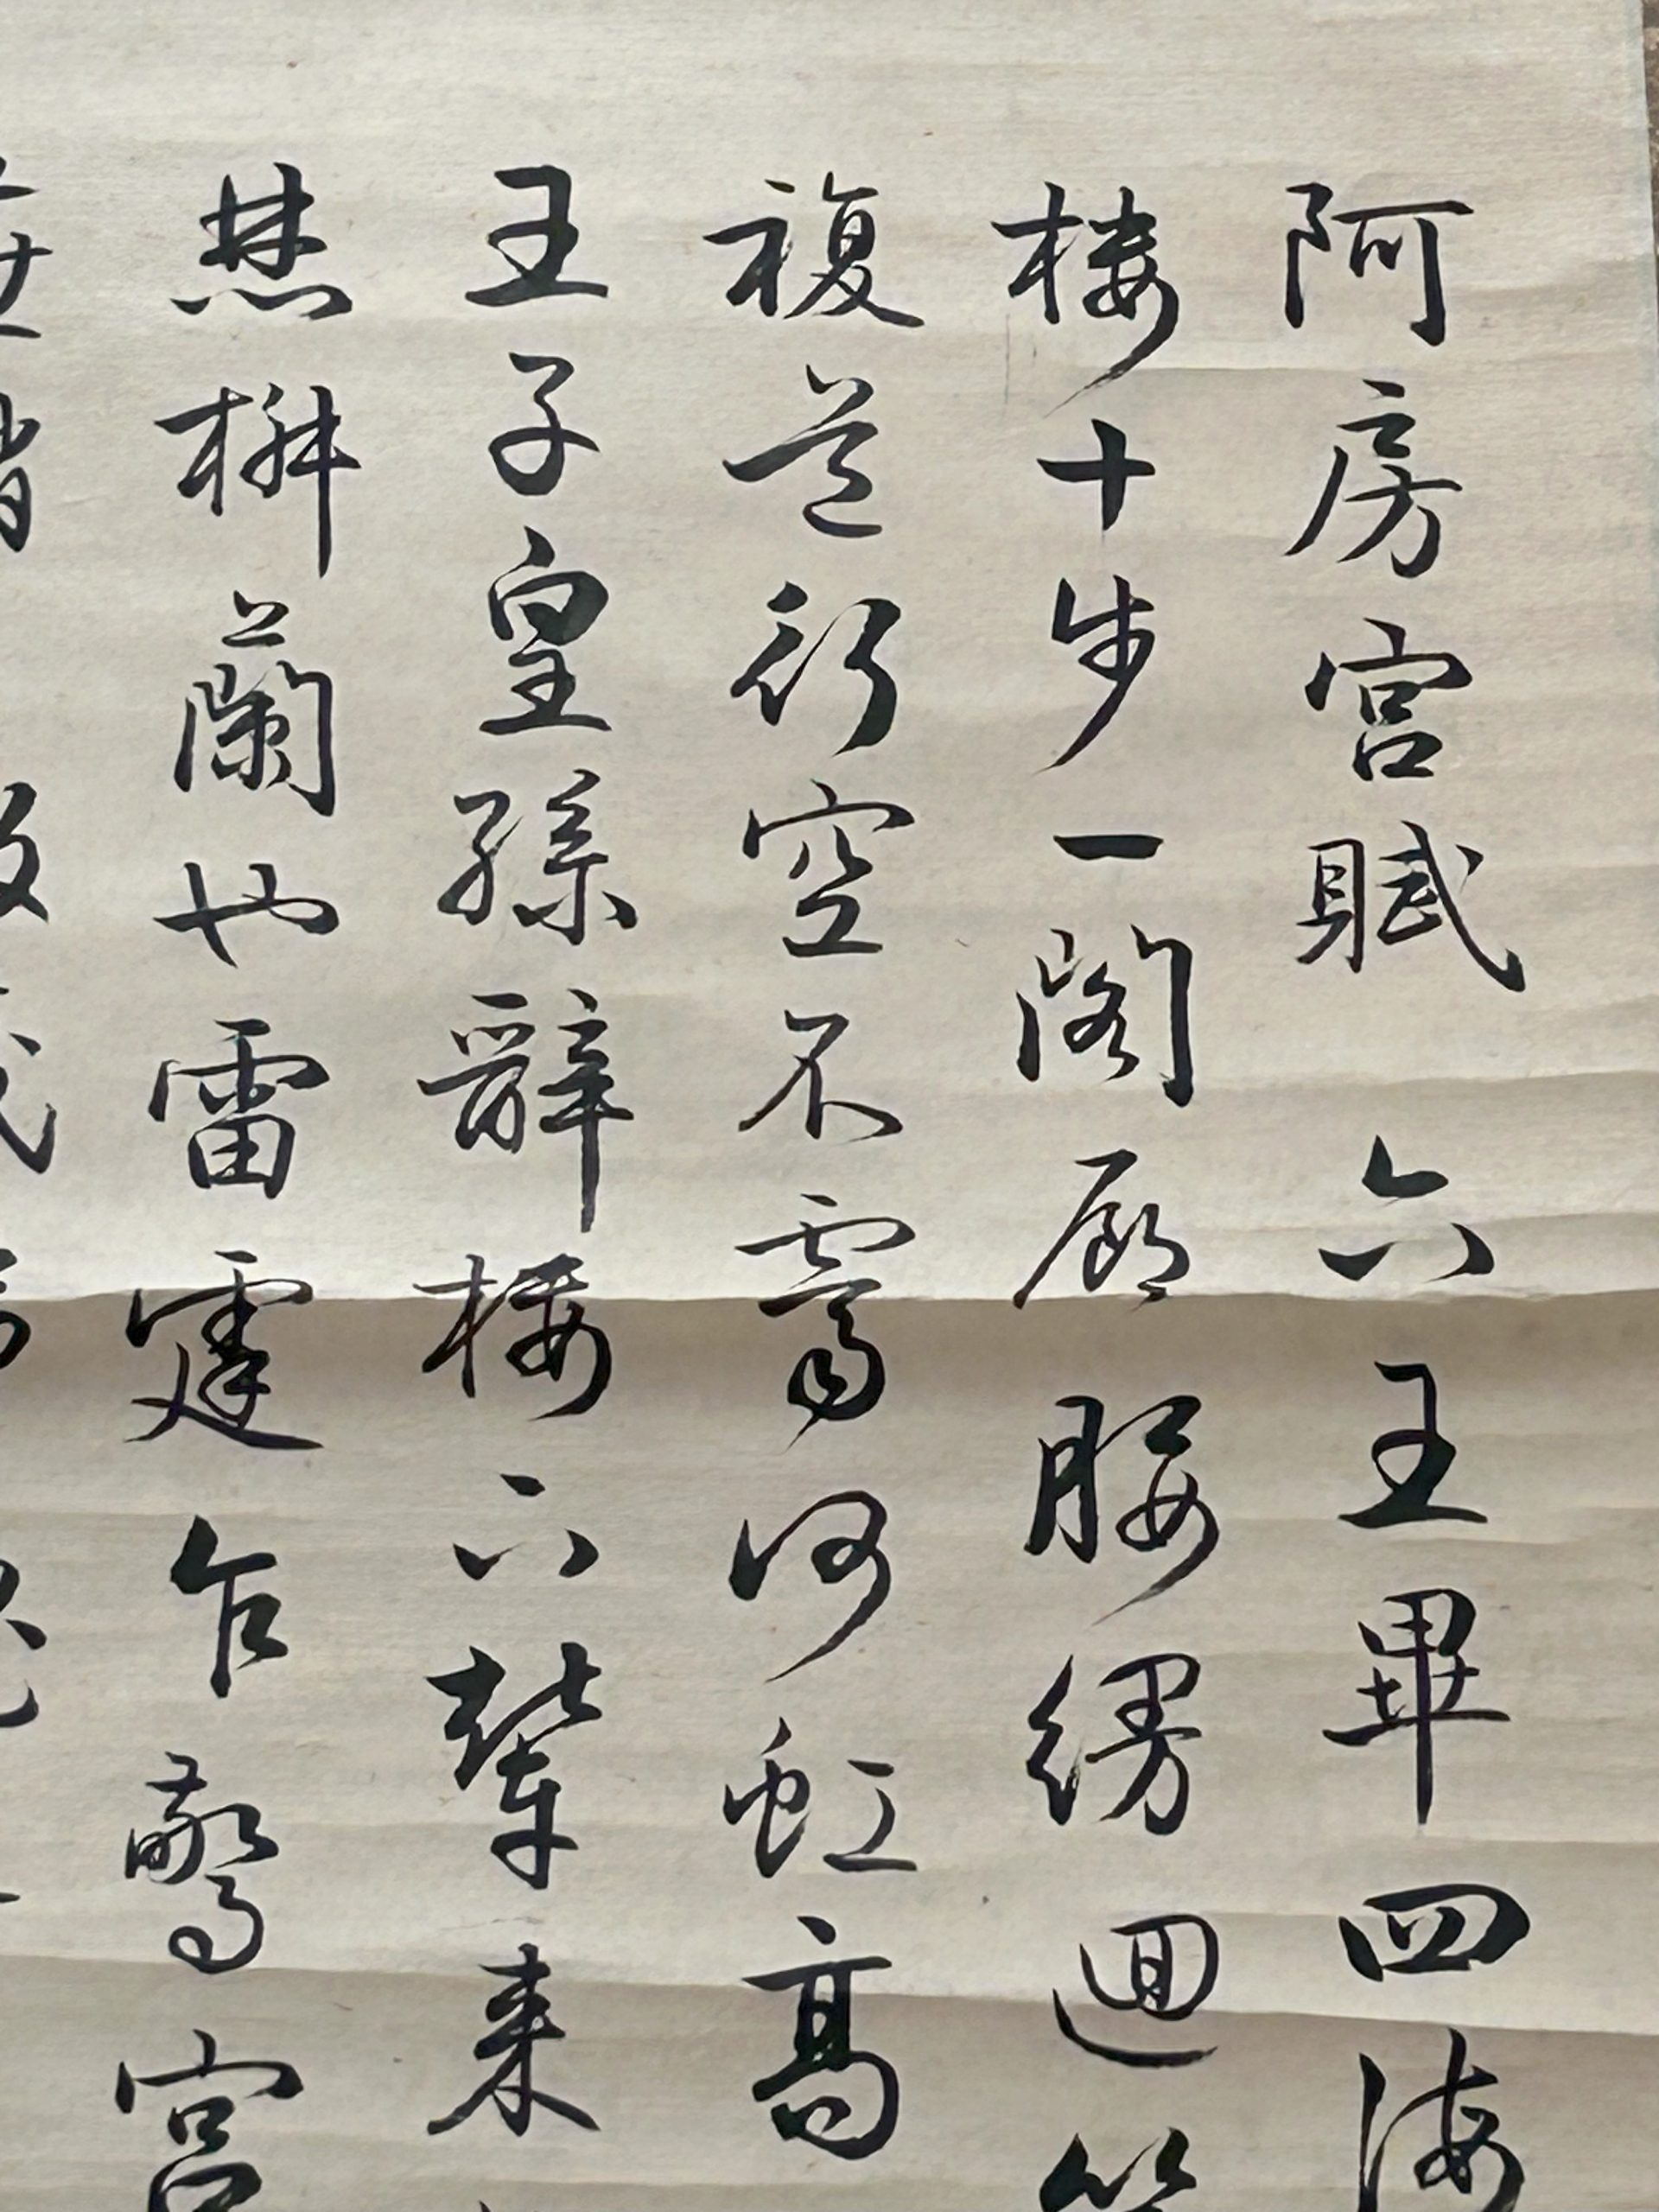 阿房宮賦 六王畢四海
楼十步一閣廊腰縵迴簷
複道行空不霽何虹高
王子皇孫辭楼下輦来
焚椒蘭也雷霆乍驚宮